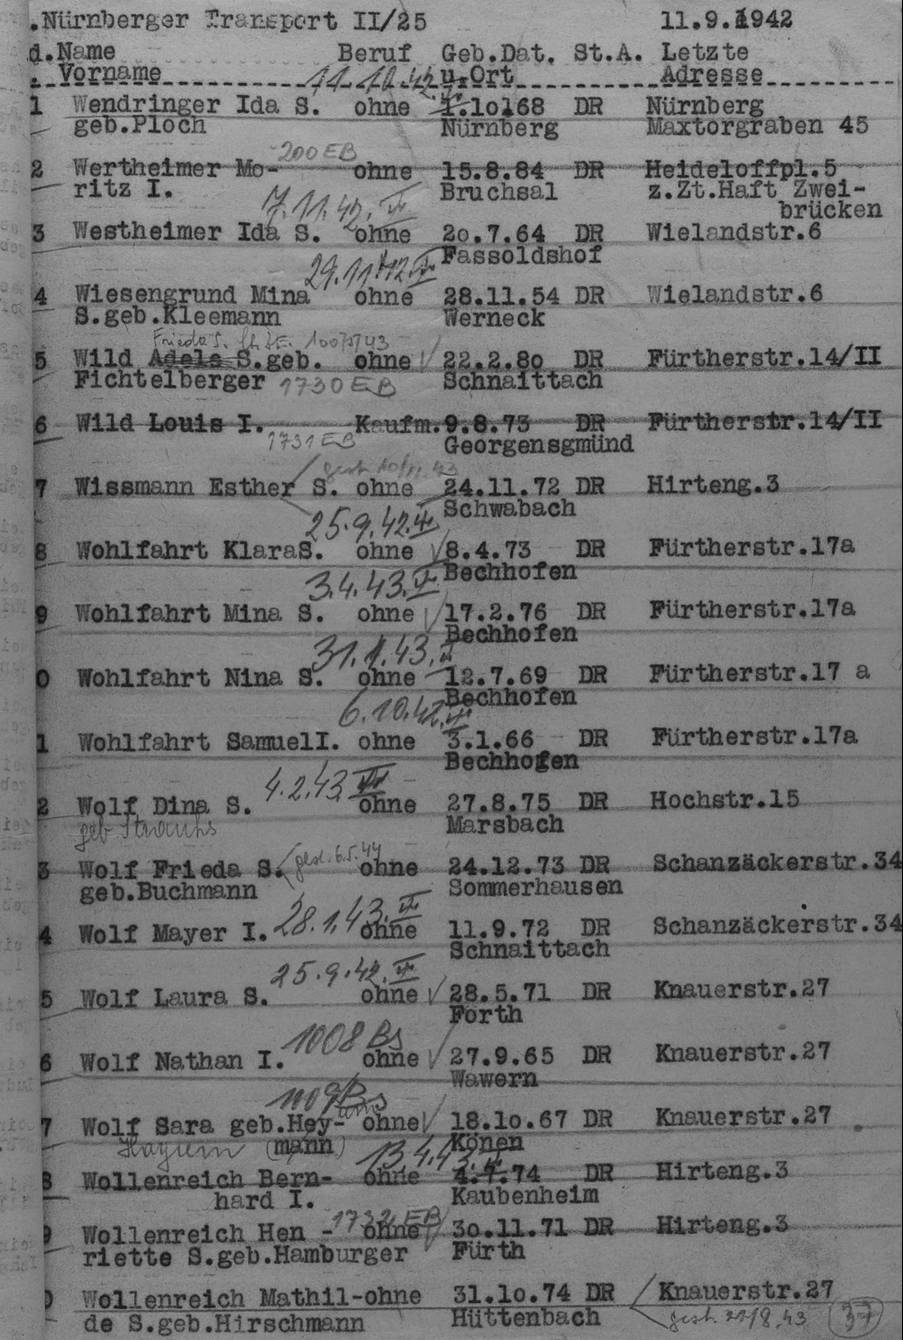 .Nürnberger Transport II/25 11.9.1942
d.Name Beruf Geb.Dat. St.A. Letzte
. Vorname 11.10.42 u.Ort Adresse
1 Wendringer Ida S. ohne 1.10.68 DR Nürnberg
geb.Ploch Nürnberg Maxtorgraben 45
200 EB
2 Wertheimer Mo- ohne 15.8.84 DR Heideloffpl.5
ritz I. Bruchsal z.Zt.Haft Zwei-
brücken
7.11.42.
3 Westheimer Ida S. ohne 20.7.64 DR Wielandstr.6
Fassoldshof
29.11.42
4 Wiesengrund Mina ohne 28.11.54 DR Wielandstr.6
S.geb.Kleemann Werneck
Frieda S.
5 Wild Adele S.geb. ohne 22.2.80 DR Fürtherstr.14/II
Fichtelberger 1730 EB Schnaittach
6 Wild Louis I. Kaufm. 9.8.73 DR Fürtherstr.14/II
1731 EB Georgensgmünd
gest.
7 Wissmann Esther S. ohne 24.11.72 DR Hirteng.3
Schwabach
25.9.42.
8 Wohlfahrt KlaraS. ohne 8.4.73 DR Fürtherstr.17a
Bechhofen
3.4.43.
9 Wohlfahrt Mina S. ohne 17.2.76 DR Fürtherstr.17a
Bechhofen
31.1.43.
0 Wohlfahrt Nina S. ohne 12.7.69 DR Fürtherstr.17 a
Bechhofen
6.10.42.
1 Wohlfahrt SamuelI. ohne 3.1.66 DR Fürtherstr.17a
Bechhofen
4.2.43
2 Wolf Dina S. ohne 27.8.75 DR Hochstr.15
geb Strauhs Marsbach
gest. 6.5.44
3 Wolf Frieda S. ohne 24.12.73 DR Schanzäckerstr.34
geb.Buchmann Sommerhausen
28.1.43.
4 Wolf Mayer I. ohne 11.9.72 DR Schanzäckerstr.34
Schnaittach
25.9.42.
5 Wolf Laura S. ohne 28.5.71 DR Knauerstr.27
Forth
1008 Bs
6 Wolf Nathan I. ohne 27.9.65 DR Knauerstr.27
Wawern
1109 Bs
7 Wolf Sara geb.Hey- ohne 18.10.67 DR Knauerstr.27
(mann) Könen
13.4.43.
8 Wollenreich Bern- ohne 4.4.74 DR Hirteng.3
hard I. Kaubenheim
1732 EB
9 Wollenreich Hen - ohne 30.11.71 DR Hirteng.3
riette S.geb.Hamburger Fürth
0 Wollenreich Mathil-ohne 31.10.74 DR Knauerstr.27
de S.geb.Hirschmann Hüttenbach gest 37